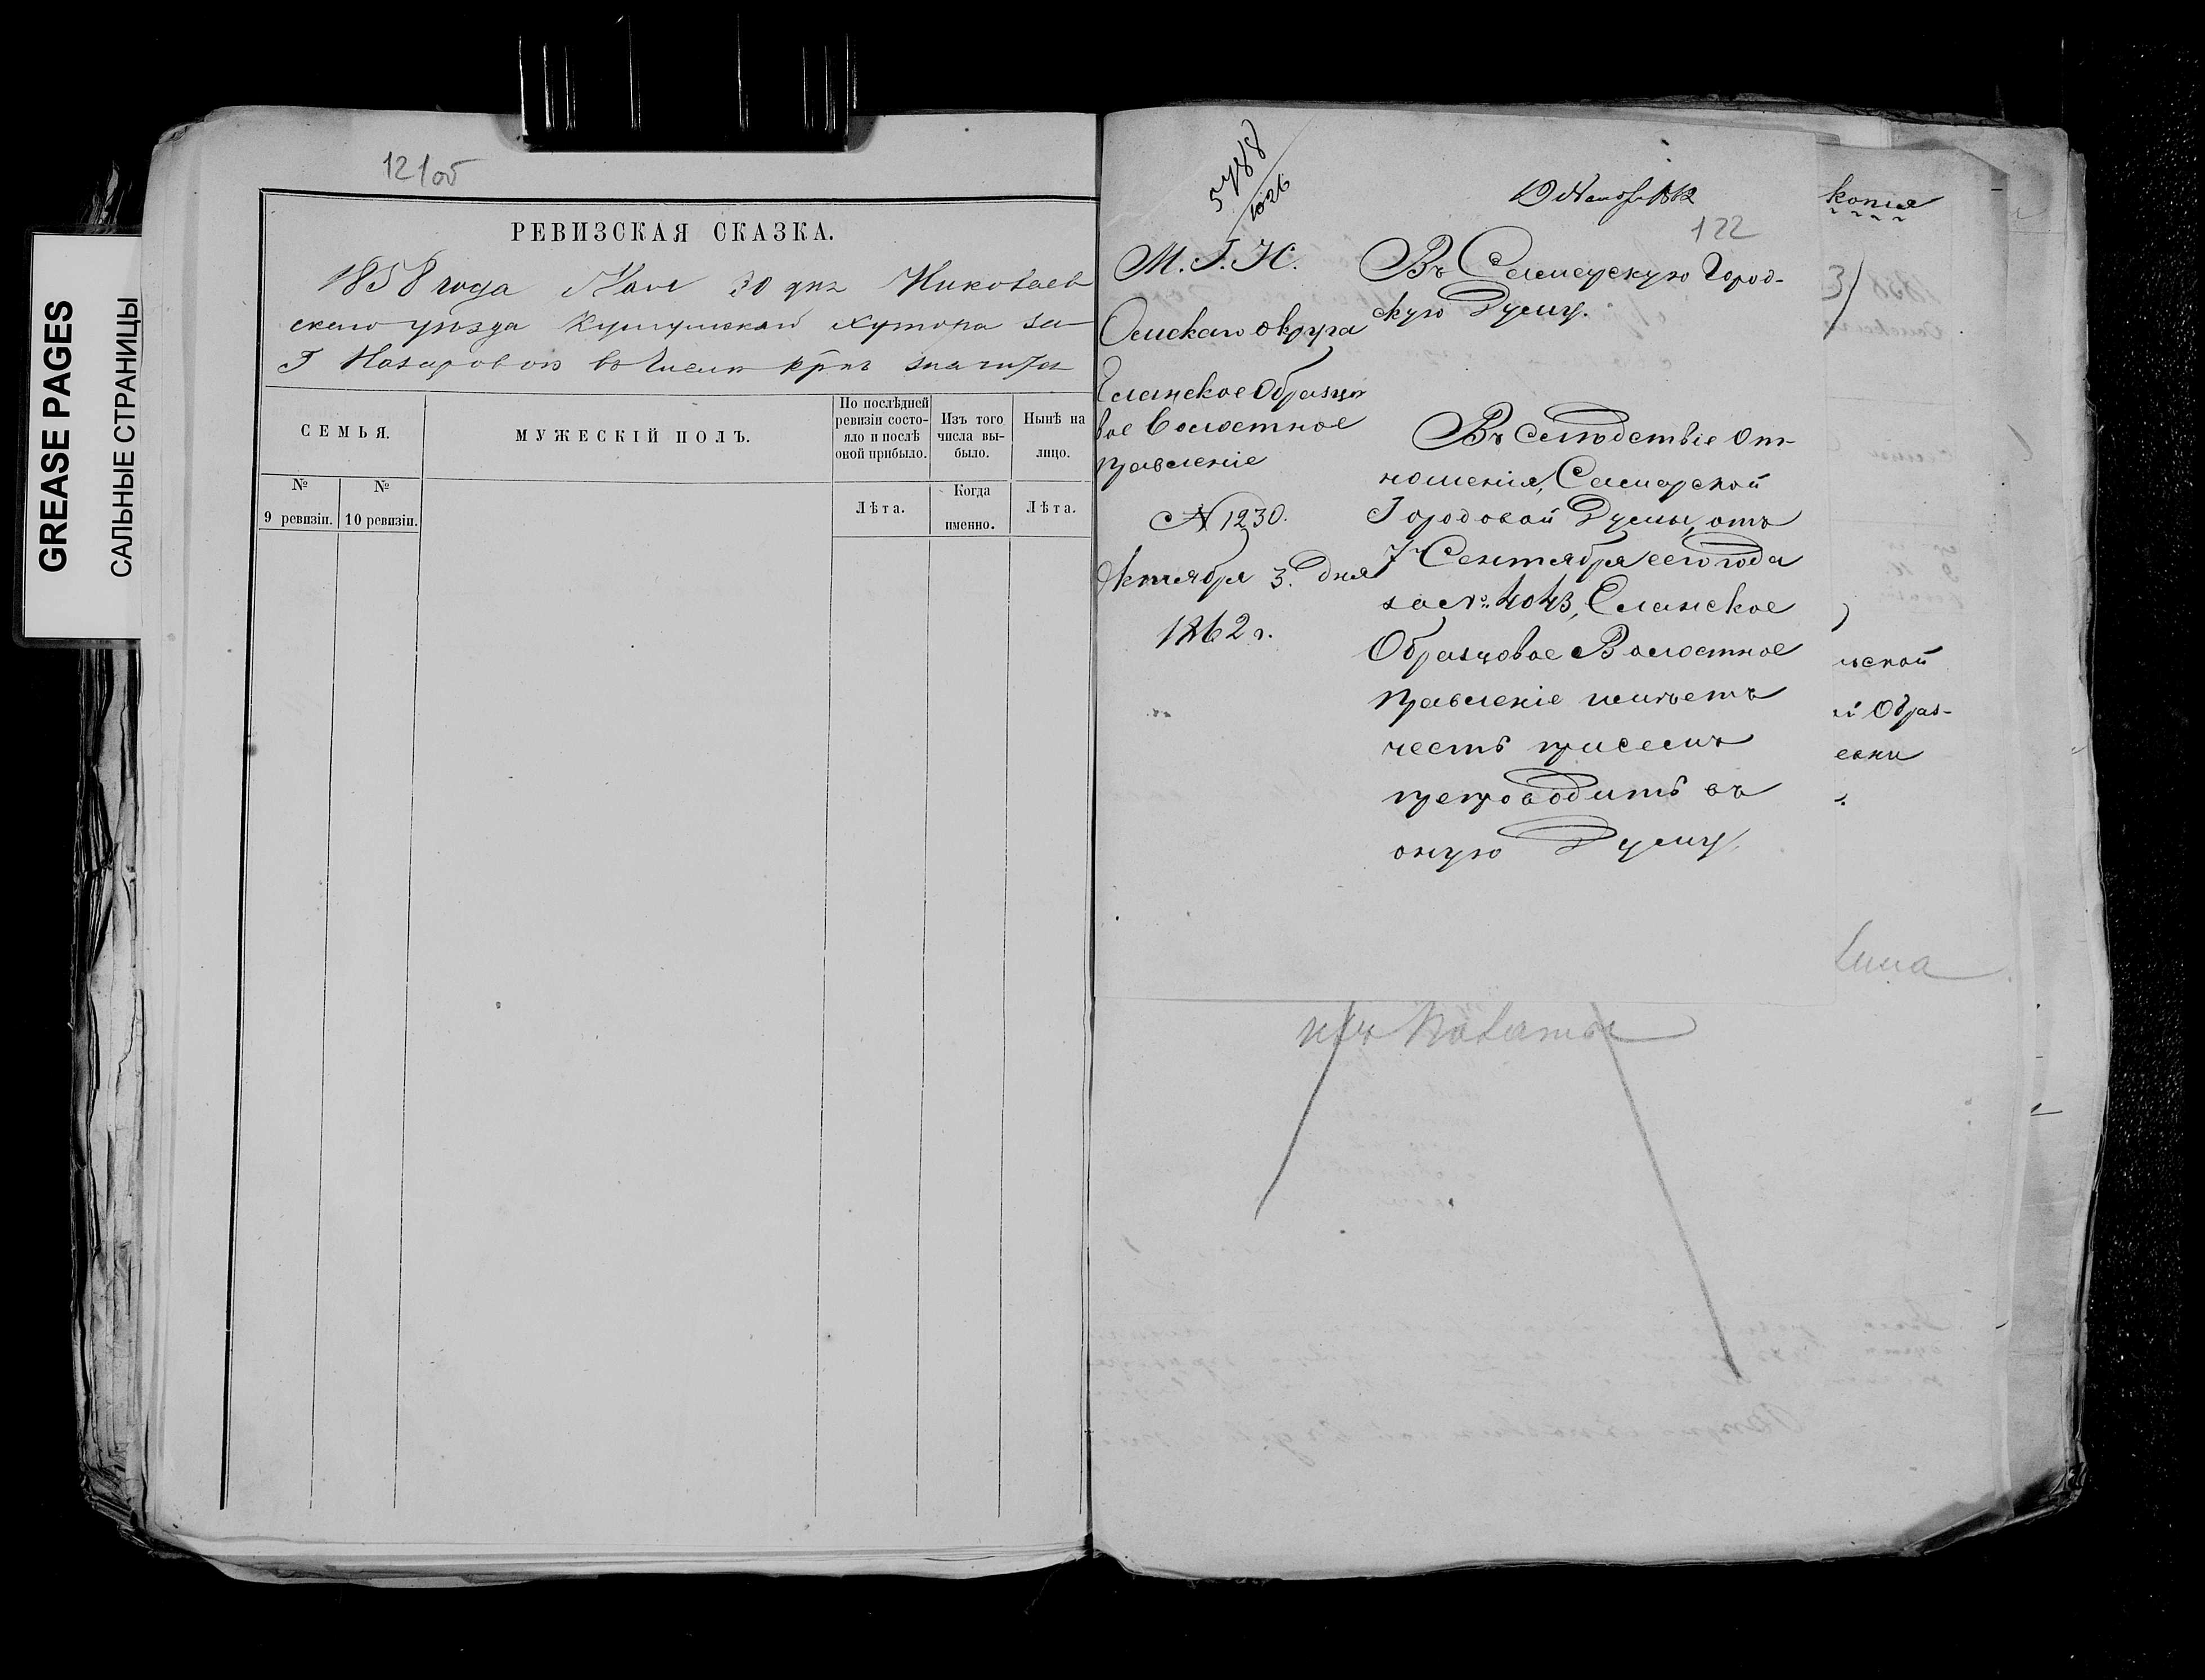 GREASE PAGES
САЛЬНЫЕ СТРАНИЦЫ
121об
РЕВИЗСКАЯ СКАЗКА.
1858 года Мая 30 дня Николаев
скаго уѣзда хутора за
Г Назаровою въ числѣ
СЕМЬЯ.
МУЖЕСКІЙ ПОЛЪ.
По послѣдней ревизіи состо-
яло и послѣ
оной прибыло.
Изъ того
числа вы-
было.
Нынѣ на
лицо.
№
9 ревизіи.
№
10 ревизіи.
Лѣта.
Когда
именно.
Лѣта.
5788
1026
М. Г. И.
Омскаго округа
Еланское Образцо
вое Волостное
правленіе
№ 1230.
Октября 3. дня
1862 г.
122
Въ Самарскую Город-
скую Думу.
Въ слѣдствіе от-
ношенія, Самарской
Городовой Думы, отъ
7 Сентября сего года
за № 4043, Еланское
Образцовое Волостное
Правленіе имѣетъ
честь при семъ
препроводить въ
оную Думу,
копія
3)
и Образ-